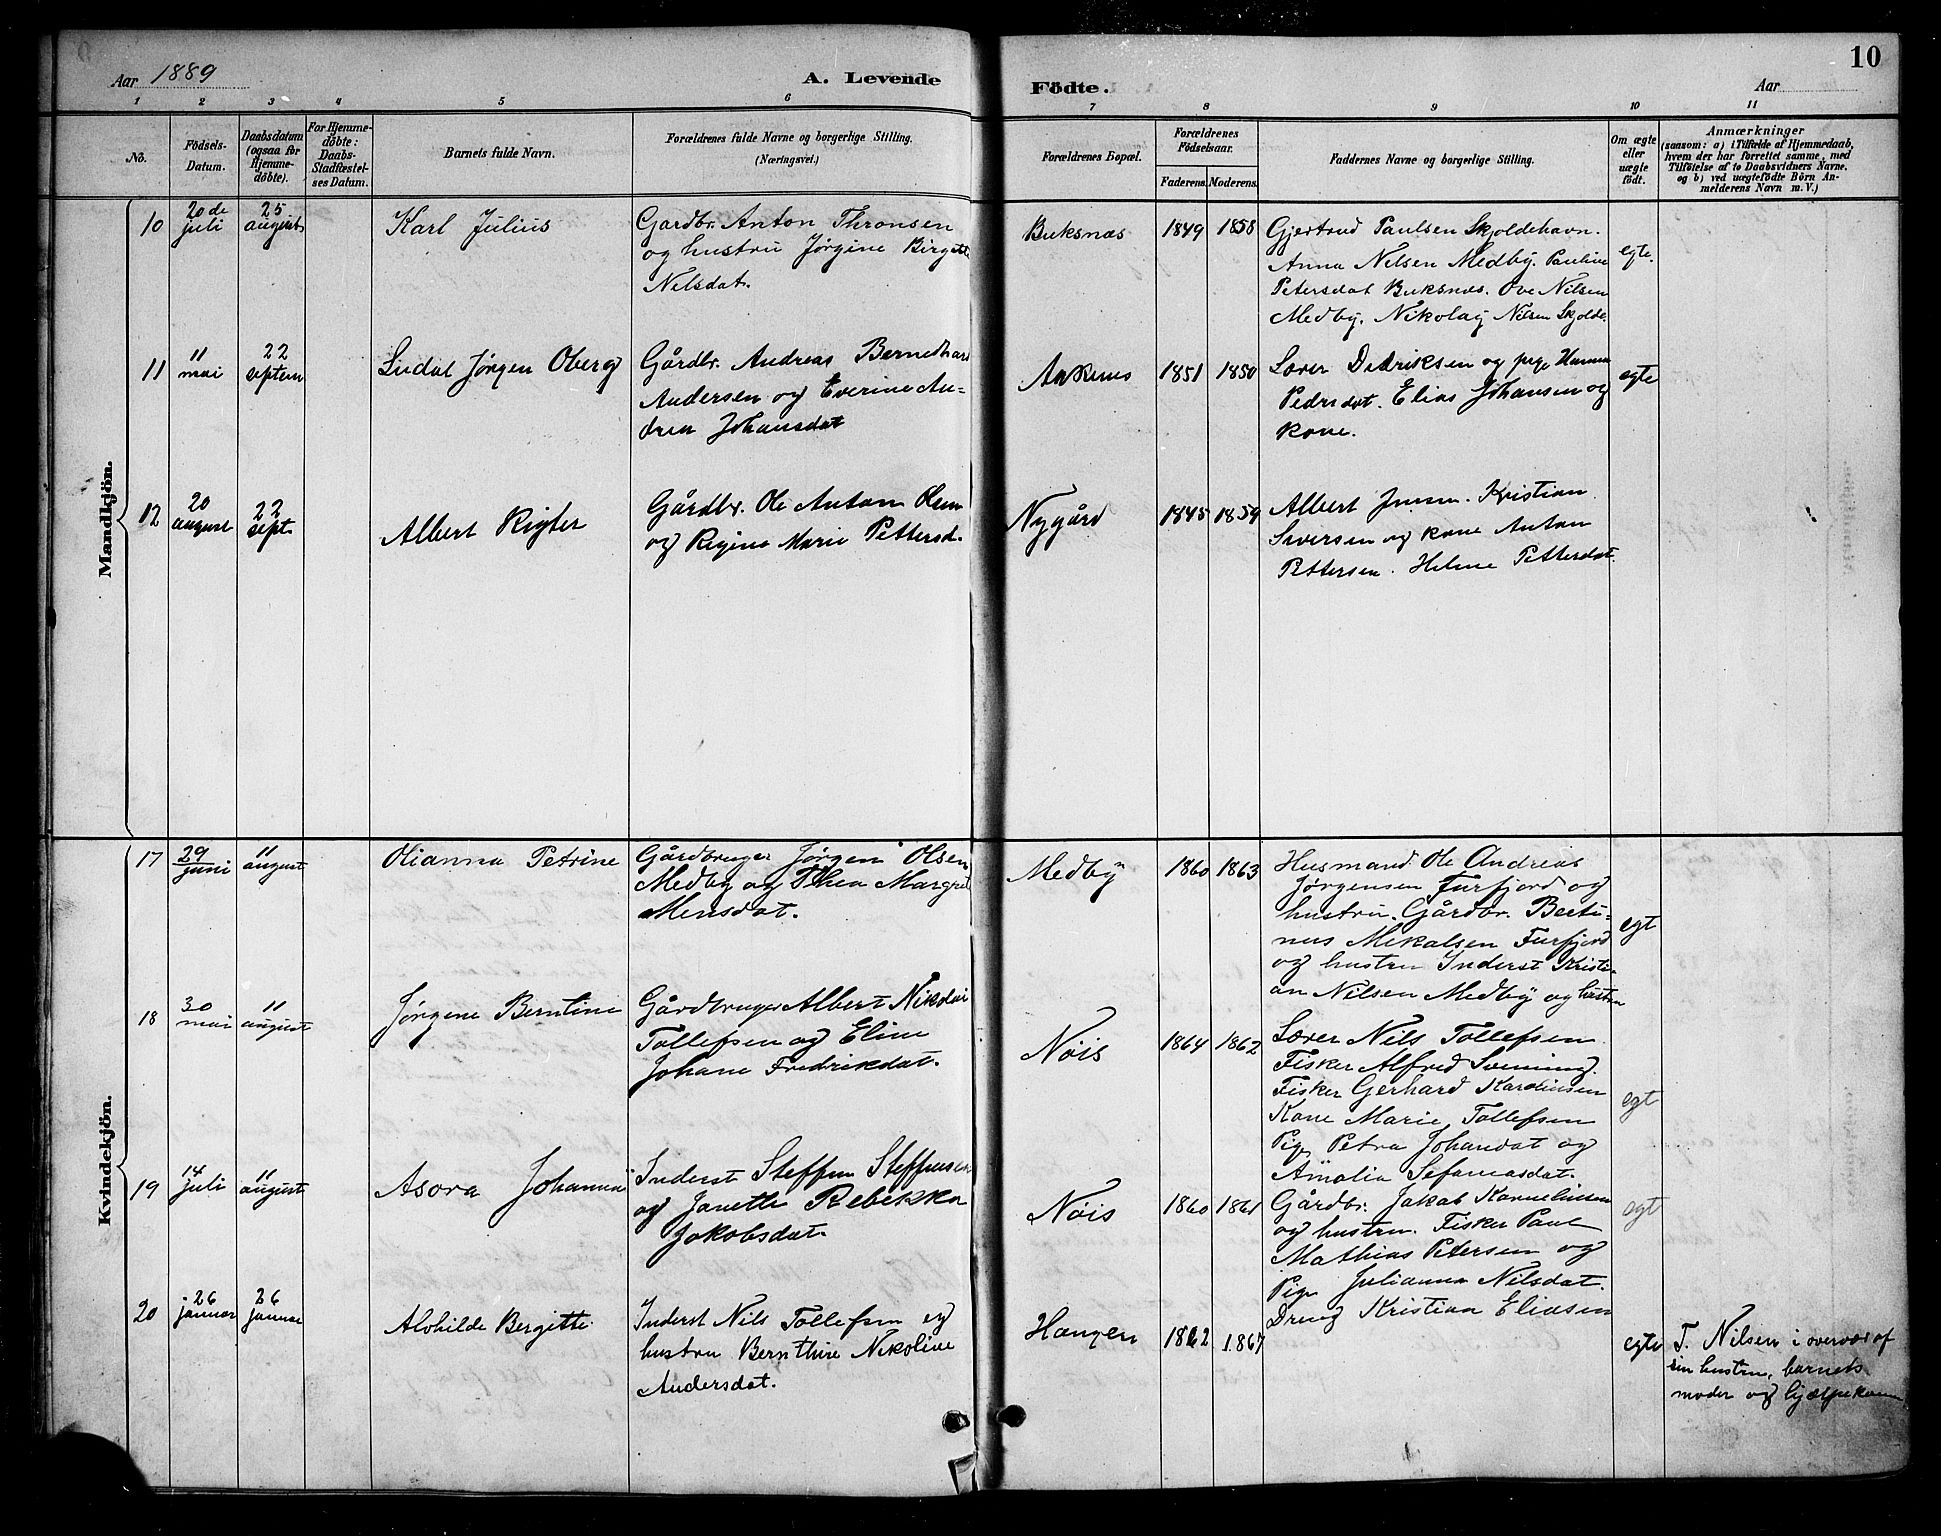 Aar 1889
A. Levende
Födte.
Aar
10
1
2
3
4
5
6
7
8
9
10
11
No.
Födsels-
Datum.
Daabsdatum
(ogsaa for
Hjemme-
döbte).
For Hjemme-
døbte:
Daabs-
Stadfæstel-
ses Datum.
Barnets fulde Navn.
Forældrenes fulde Navne og borgerlige Stilling.
(Næringsvei.)
Forældrenes Bopæl.
Forældrenes
Födselsaar.
Faderens.
Moderens.
Faddernes Navne og borgerlige Stilling.
Om ægte
eller
uægte
födt.
Anmærkninger
(saasom: a) i Tilfælde af Hjemmedaab,
hvem der har forrettet samme, med
Tilföielse af to Daabsvidners Navne,
og b) ved uægtefödte Börn An-
melderens Navn m. V.)
Mandkjön.
10
20de
juli
25
august
Karl Julius
Gardbr. Anton Thronsen
og hustru Jørgine Birgitte
Nilsdat.
Buksnæs
1849
1858
Gjertrud Paulsen Skjoldehavn.
Anna Nilsen Medby. Pauline
Petersdat Buksnæs. Ove Nilsen
Medby. Nikolay Nilsen Skjolde.
egte.
11
11
mai
22
septem
Jørgen Oberg
Gårdbr. Andreas Bernedhard
Andersen og Everine An-
drea Johansdat
Ankenes
1851
1850
Lærer Dedriksen og pige Hanna
Pedersdat. Elias Johansen og
kone.
egte
12
20
august
22
sept.
Albert Rigter
Gårdbr. Ole Anton Olsen
og Regine Marie Pettersd.
Nygård
1845
1859
Albert Jensen. Kristian
Siversen og kone Anton
Pettersen. Helene Petterdat.
Kvindekjön.
17
29
juni
11
august
Olianna Petrine
Gårdbruger Jørgen Olsen
Medby og Thea Margret
Mensdat.
Medby
1860
1863
Husmand Ole Andreas
Jørgensen Furfjord og
hustru. Gårdbr. Bertu-
nus Mikalsen Furfjord
og hustru Inderst Kristi-
an Nilsen Medby og hustru
egt
18
30
mai
11
august
Jørgine Berntine
Gårdbruger Albert Nikolai
Tollefsen og Eline
Johane Fredrikdat.
Nøis
1864
1862
Lærer Nils Tollefsen
Fisker Alfred Svening.
Fisker Gerhard Karolinsen
Kone Marie Tollefsen
Pige Petra Johandat og
Amalia Sefaniasdat.
egt
19
14
juli
11
august
Asora Johanna
Inderst Steffen Steffensen
og Janette Rebekka
Jakobsdat.
Nøis
1860
1861
Gårdbr. Jakob Korneliusen
og hustru. Fisker Paul
Mathias Petersen og
Pige Julianna Nilsdat.
Dreng Kristian Eliasen
egt
20
26
januar
26
januar
Alvhilde Bergitte
Inderst Nils Tollefsen og
hustru Bernthine Nikoline
Andersdat.
Haugen
1862
1867
egte
T. Nilsen i overvær af
sin hustru, barnets
moder og hjælpekone